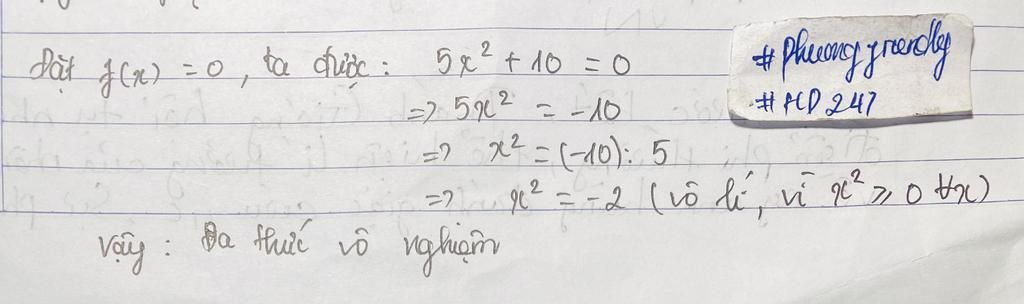 Đặt f(x) = 0, ta được: 5x² + 10 = 0
=> 5x² = -10
=> x² = (-10) : 5
=> x² = -2 (vô lí, vì x² ≥ 0 ∀x)
Vậy: Đa thức vô nghiệm
#Phuongfriendly
#HD247